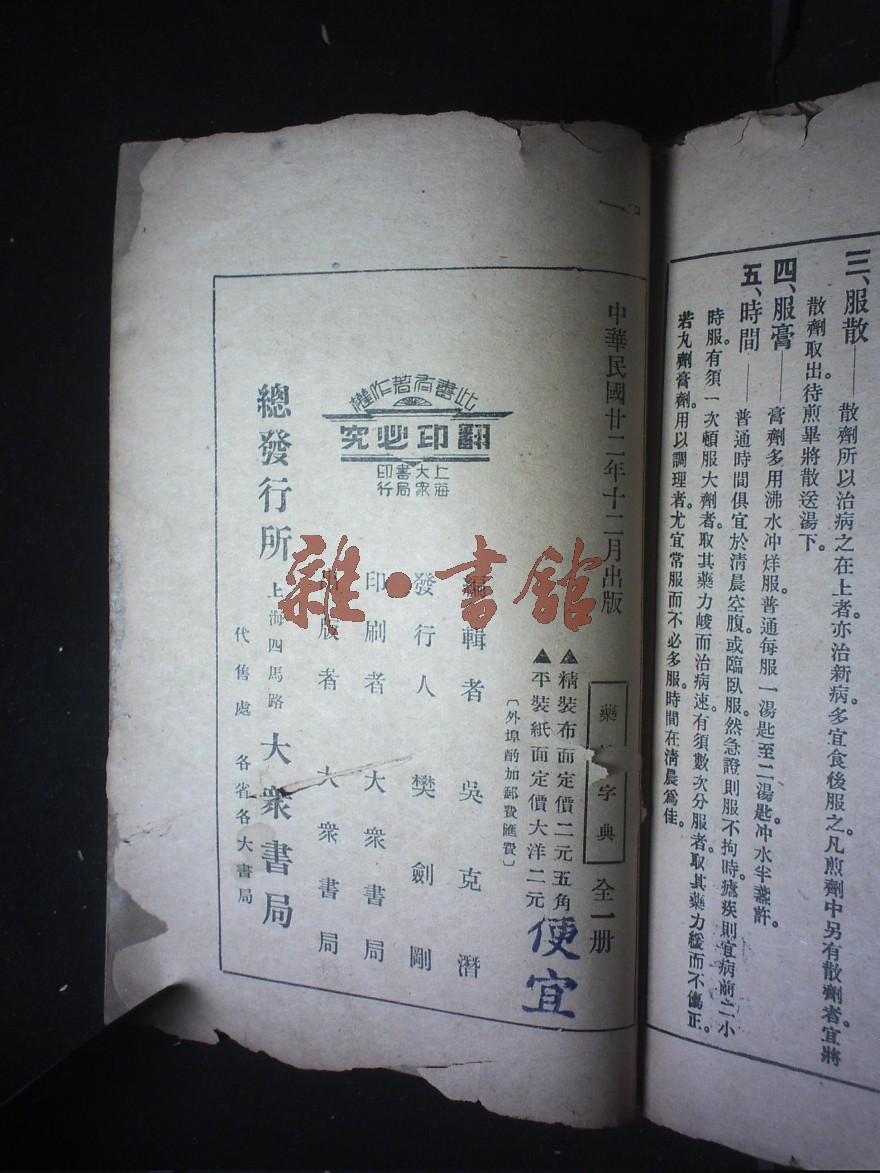 三、服散——散劑所以治病之在上者。亦治新病多宜食後服之。凡煎劑中另有散劑者宜將
散劑取出待煎畢將散送湯下。
四、服膏——膏劑多用沸水冲烊服普通每服一湯匙至二湯匙。冲水半盞許。
五、時間——普通時間俱宜於清晨空腹。或臨臥服。然急證則服不拘時。瘧疾則宜病前二小
時服有須一次頓服大劑者。取其藥力峻而治病速有須數次分服者。取其藥力緩而不傷正。
若丸劑膏劑。用以調理者。尤宜常服而不必多服。時間在清晨爲佳。
中華民國廿二年十二月出版
藥 字典 全一册
▲精裝布面定價二元五角
▲平裝紙面定價大洋二元
〔外埠酌加郵費匯費〕
便宜
編輯者 吳克潛
發行人 樊劍剛
印刷者 大衆書局
版者 大衆書局
此書有著作權
翻印必究
上海
大衆
書局
印行
總發行所 上海四馬路 大衆書局
代售處 各省各大書局
雜·書館